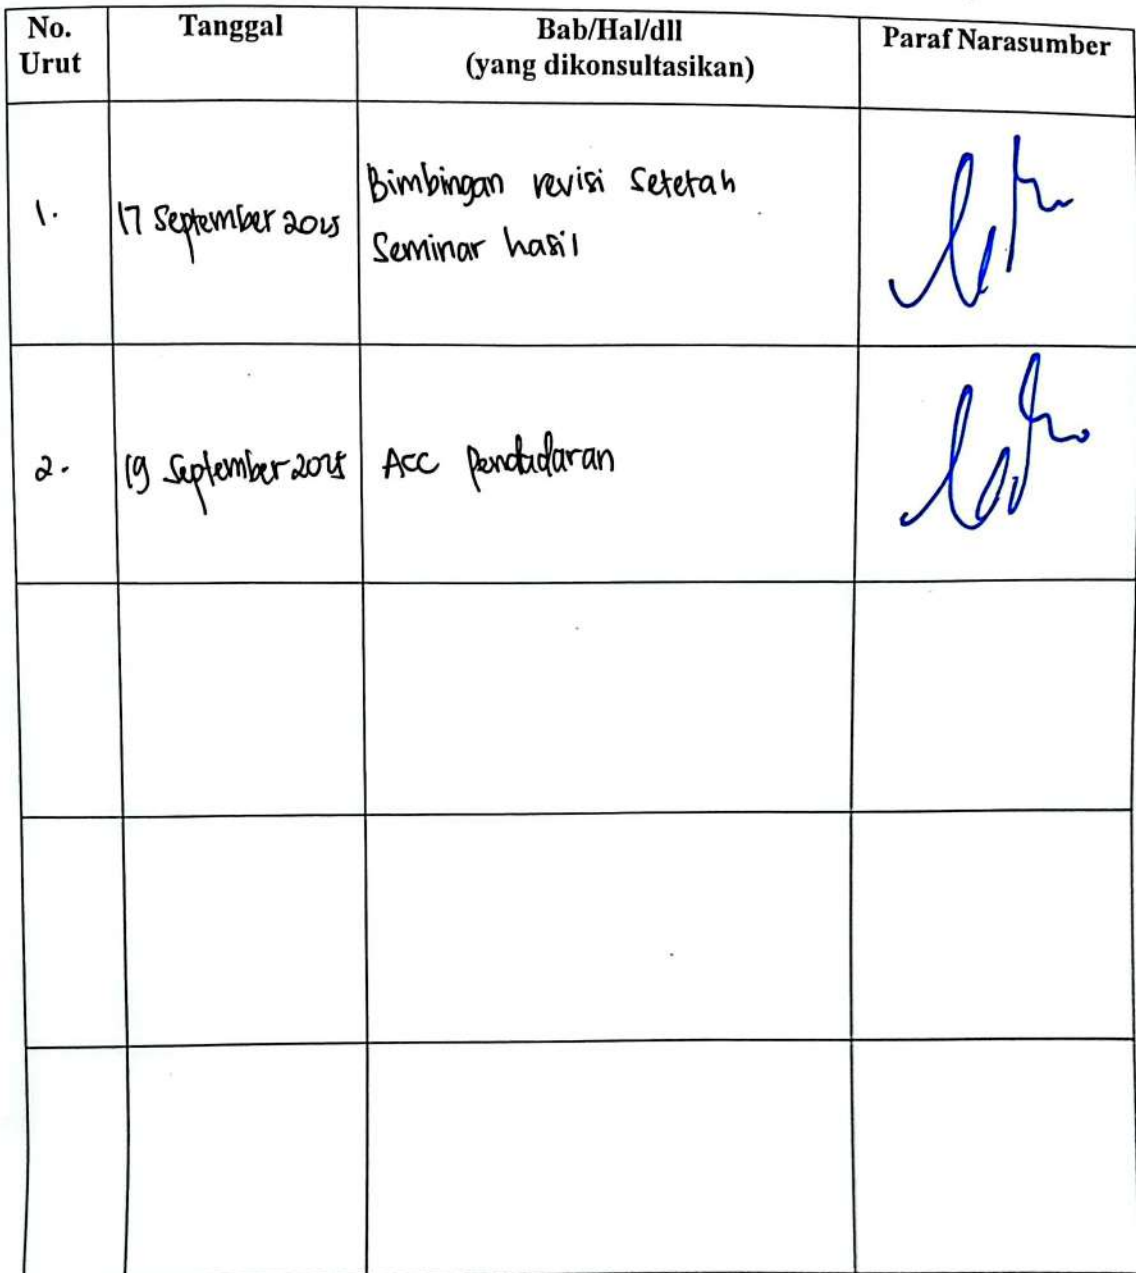 No. Urut
Tanggal
Bab/Hal/dll
(yang dikonsultasikan)
Paraf Narasumber
1.
17 September 2025
Bimbingan revisi setelah
Seminar hasil
2.
19 September 2025
Acc pendadaran